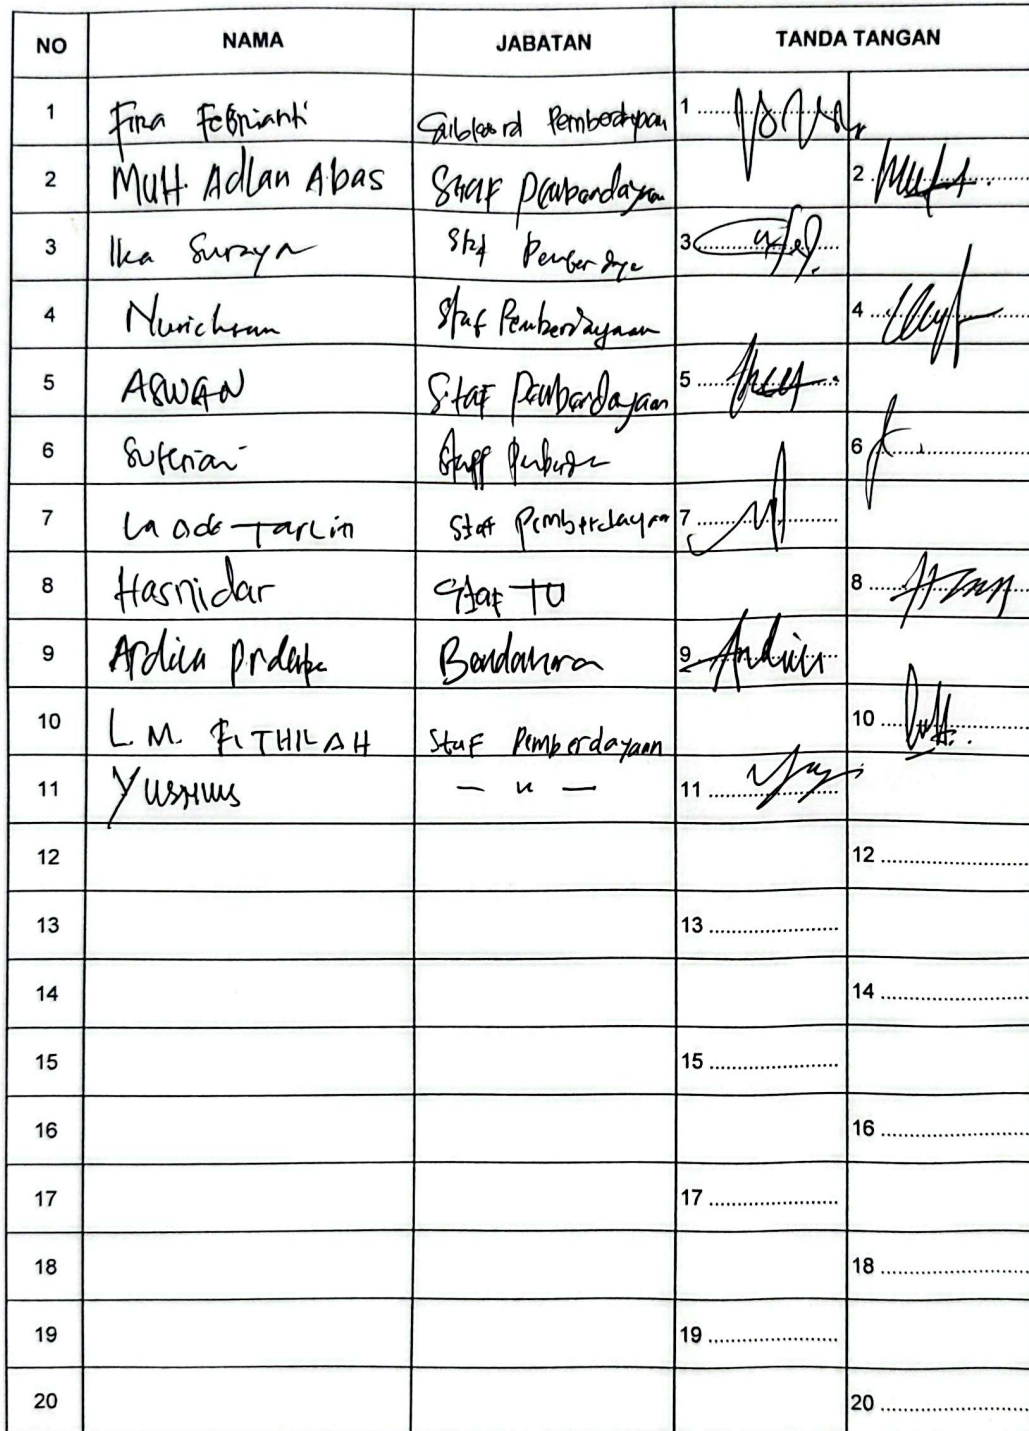 NO NAMA JABATAN TANDA TANGAN
1 Fira Febrianti Pemberdayaan 1
2 MUH. Adlan Abas Staf Pembardayaan 2
3 Ika Suraya Staf 3
4 Nurichsan Staf Pemberdayaan 4
5 ASWAN Staf Pembardayaan 5
6 Staff 6
7 La Ode Tarlin Staf Pemberdayaan 7
8 Hasnidar Staf TU 8
9 Bendahara 9
10 L. M. FITHILAH Staf Pemberdayaan 10
11 — " — 11
12 12
13 13
14 14
15 15
16 16
17 17
18 18
19 19
20 20